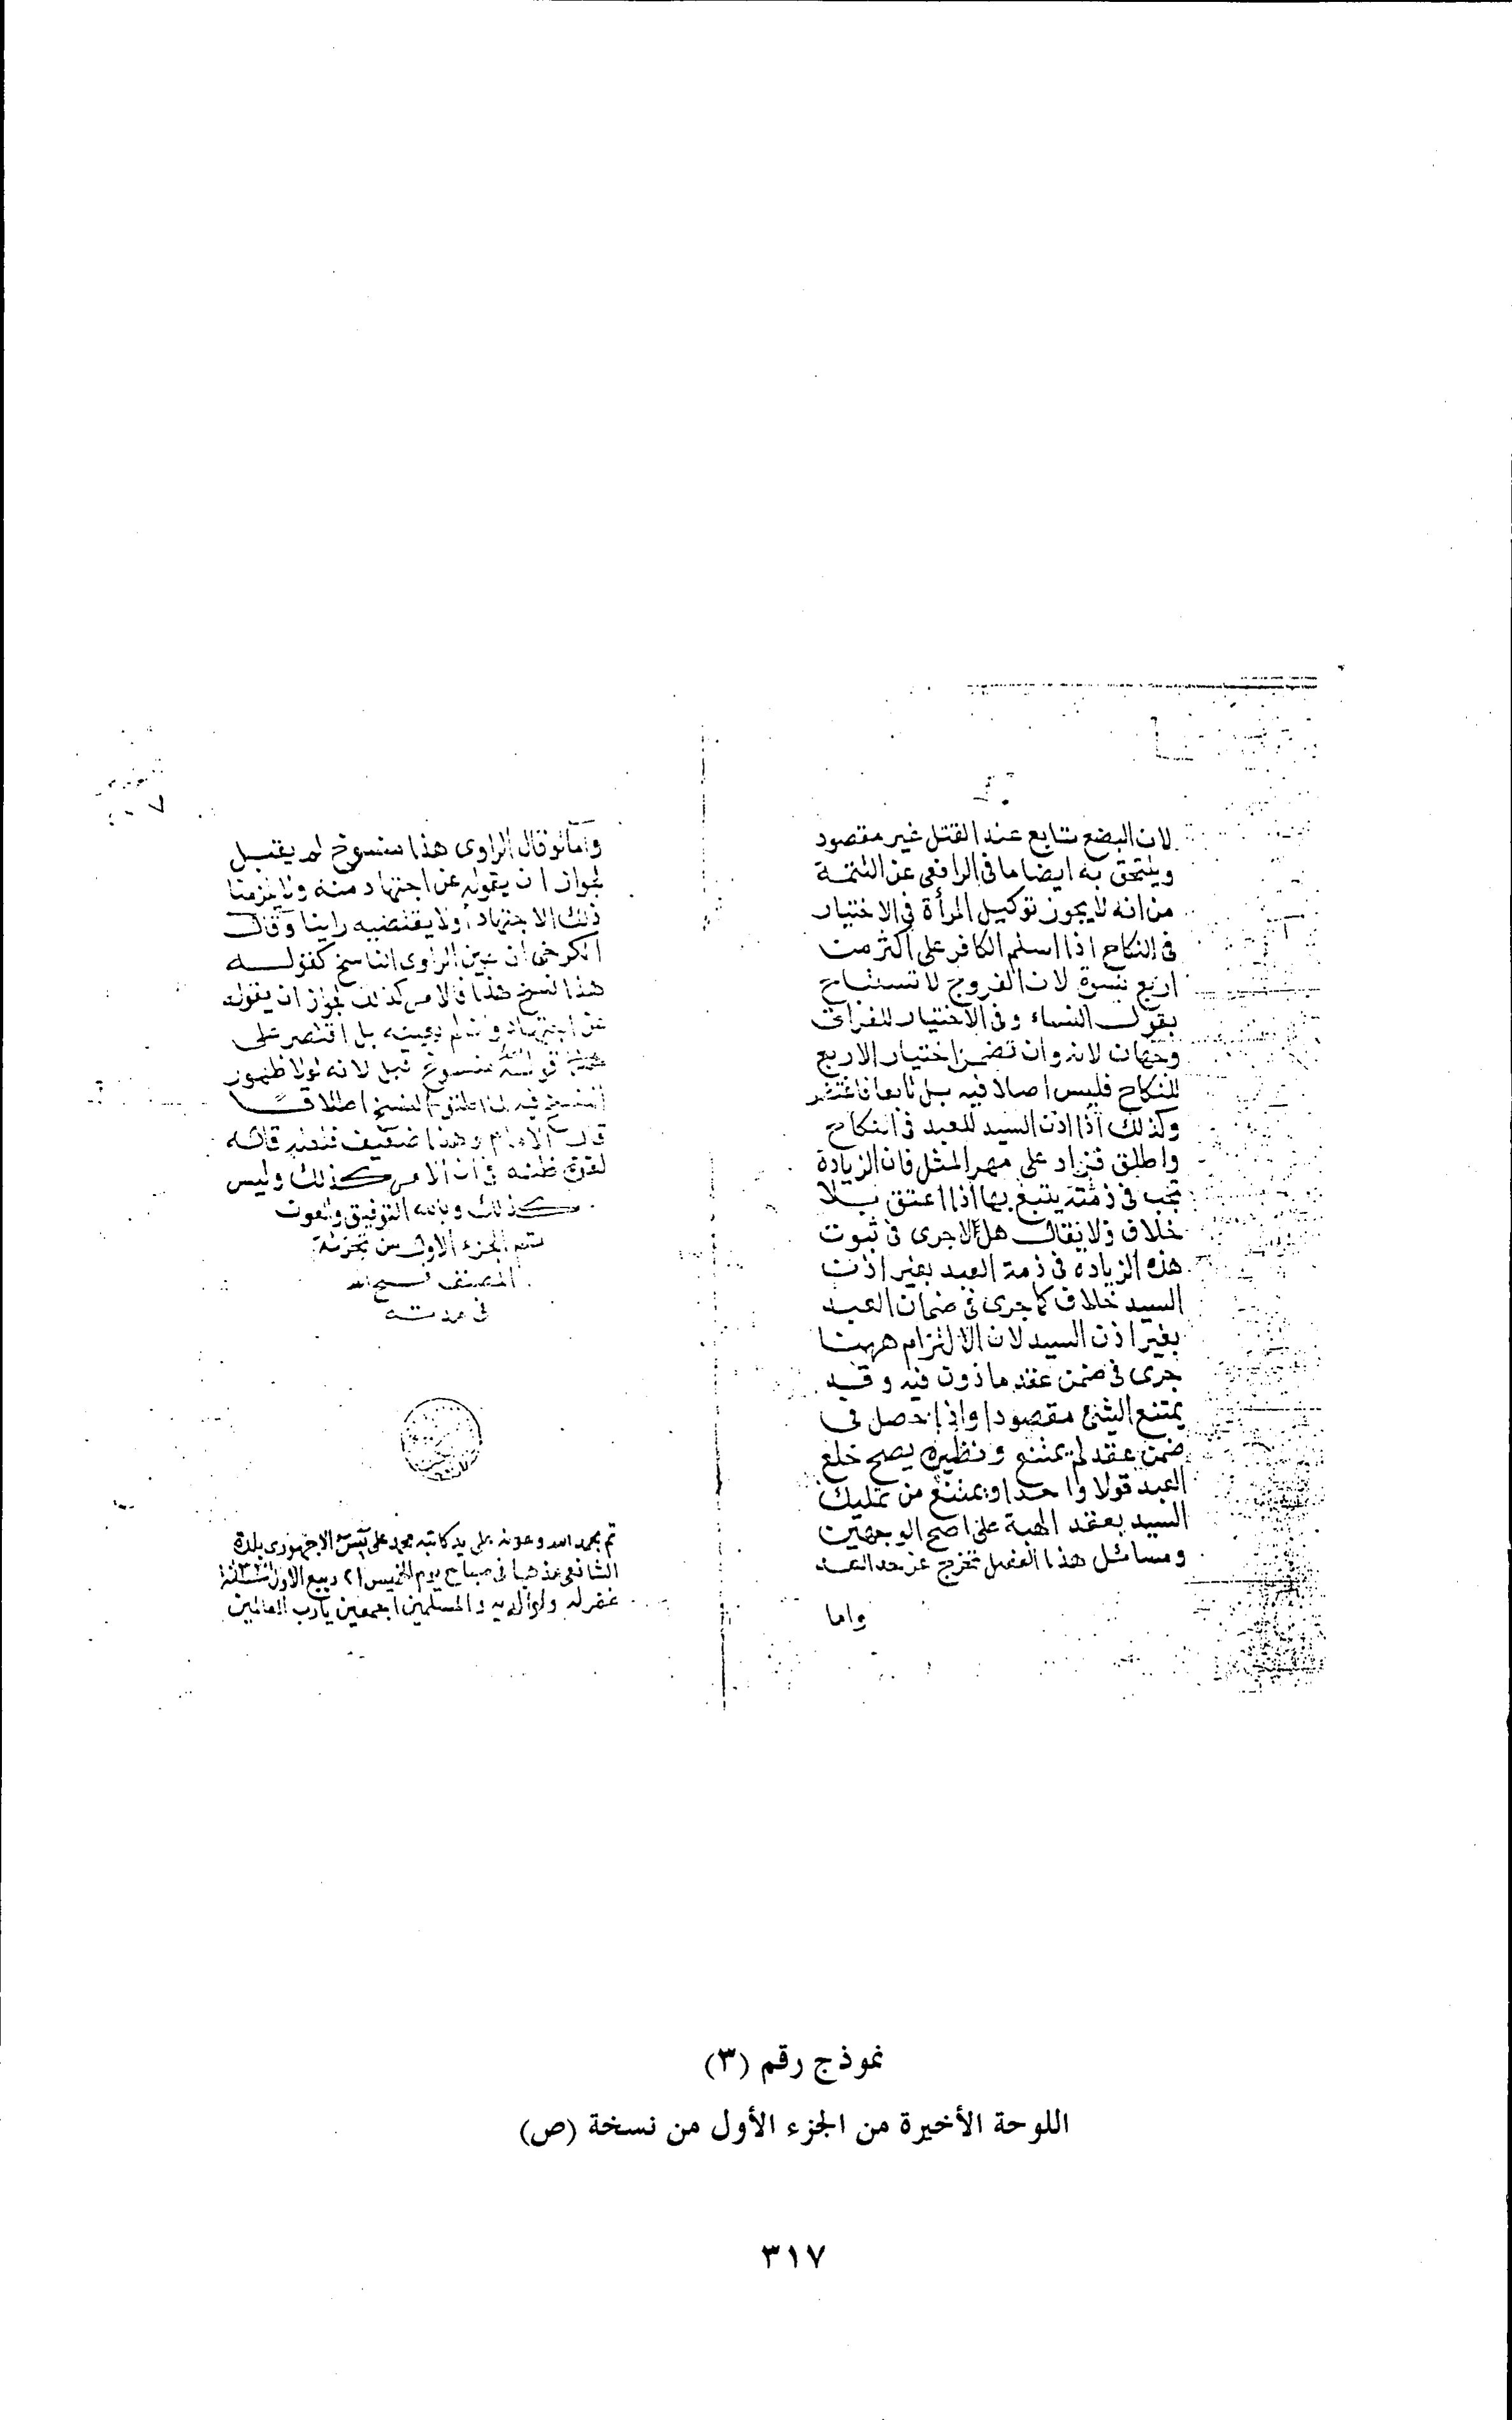 لان البضع تابع عند القتل غير مقصود
ويلتحق به ايضا ما فى الرافعى عن التتمة
من انه لا يجوز توكيل المرأة فى الاختيار
فى النكاح اذا اسلم الكافر على اكثر من
اربع نسوة لان الفروج لا تستباح
بقول النساء وفى الاختيار للفراق
وجهان لانه وان تضمن اختيار الاربع
للنكاح فليس اصلا فيه بل تابعا فاغتفر
وكذلك اذا اذن السيد للعبد فى النكاح
واطلق فزاد على مهر المثل فان الزيادة
تجب فى ذمته يتبع بها اذا اعتق بلا
خلاف ولا يقال هلا جرى فى ثبوت
هذه الزيادة فى ذمة العبد بغير اذن
السيد خلاف كما جرى فى ضمان العبد
بغير اذن السيد لان الالتزام ههنا
جرى فى ضمن عقد ماذون فيه وقد
يمتنع الشئ مقصودا واذا حصل فى
ضمن عقد لم يمتنع ونظيره يصح خلع
العبد قولا واحدا ويمتنع من تمليك
السيد بعقد الهبة على اصح الوجهين
ومسائل هذا الفصل تخرج عن حد العد
واما
واما لو قال الراوى هذا منسوخ لم يقبل
لجواز ان يقوله عن اجتهاد منه ولا يلزمنا
ذلك الاجتهاد ولا يقتضيه راينا وقال
الكرخى ان عين الراوى الناسخ كقوله
هذا نسخ هذا فالامر كذلك لجواز ان يقوله
عن اجتهاد وان لم يعينه بل اقتصر على
قوله منسوخ قبل لانه لولا ظهور
النسخ فيه لما اطلق النسخ اطلاقا
قال الامام وهذا ضعيف فلعله قاله
لقوة ظنه فى ان الامر كذلك وليس
كذلك وبالله التوفيق والعون
تم الجزء الاول من تجزئة
المصنف فسح الله
فى مدته
تم بحمد الله وعونه على يد كاتبه محمد على الاجهورى بلدة
الشافعى مذهبا فى صباح يوم الخميس ٢١ ربيع الاول
غفر له ولوالديه والمسلمين اجمعين يارب العالمين
نموذج رقم (٣)
اللوحة الأخيرة من الجزء الأول من نسخة (ص)
٣١٧